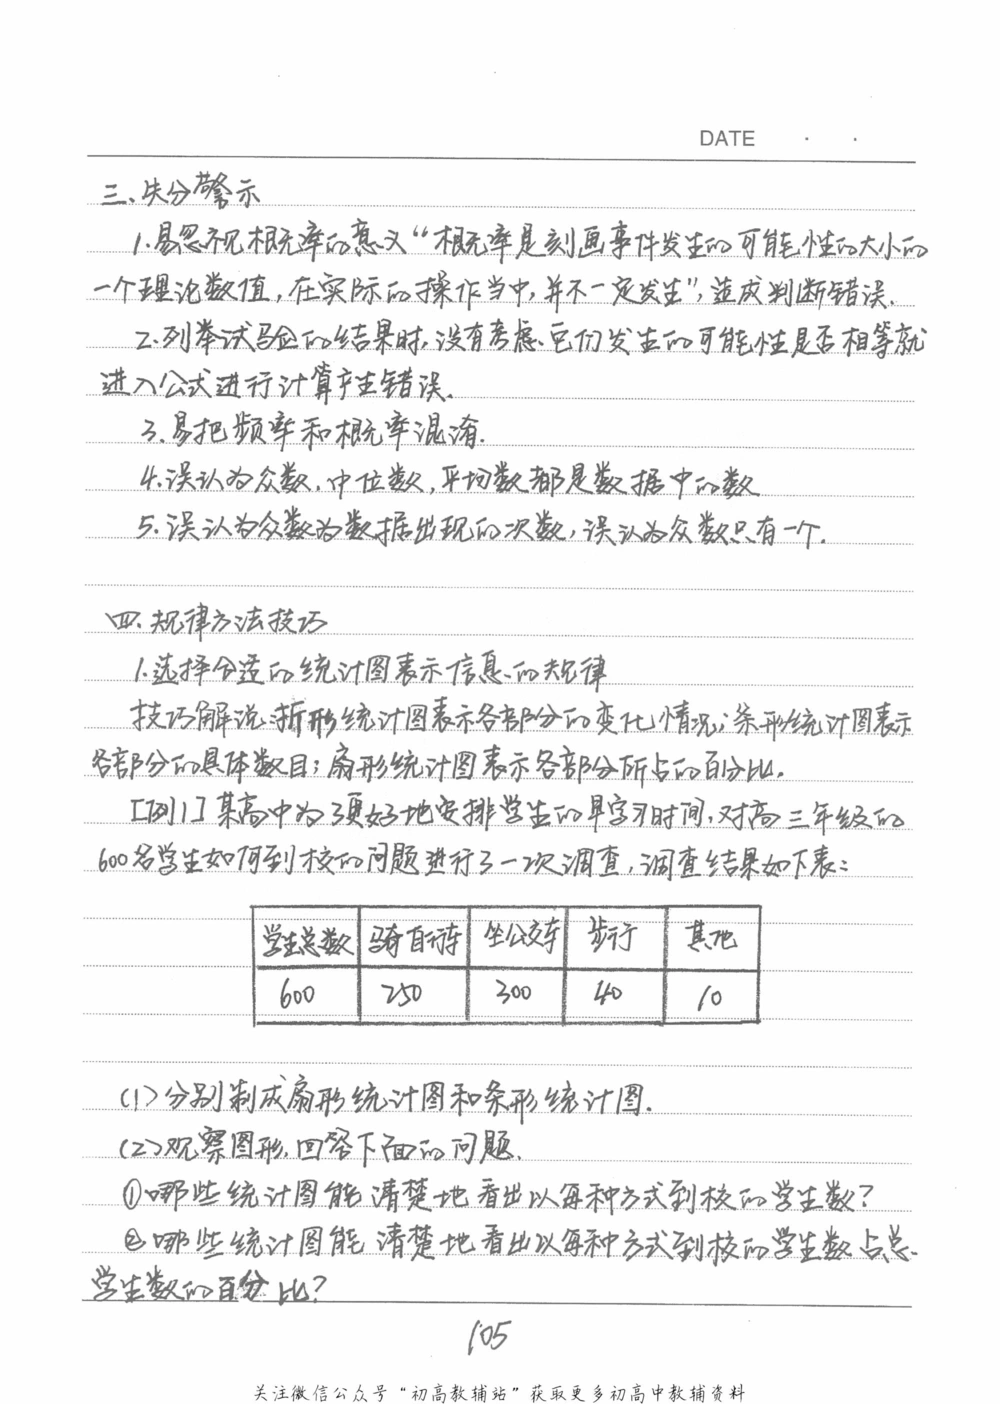 DATE · ·
三、失分警示
1.易忽视概率的意义“概率是刻画事件发生的可能性的大小的
一个理论数值,在实际的操作当中,并不一定发生”,造成判断错误.
2.列举试验的结果时,没有考虑它们发生的可能性是否相等就
进入公式进行计算产生错误.
3.易把频率和概率混淆.
4.误认为众数,中位数,平均数都是数据中的数
5.误认为众数为数据出现的次数,误认为众数只有一个.
四、规律方法技巧
1.选择合适的统计图表示信息的规律
技巧解说:折形统计图表示各部分的变化情况;条形统计图表示
各部分的具体数目;扇形统计图表示各部分所占的百分比.
[例1]某高中为了更好地安排学生的早学习时间,对高三年级的
600名学生如何到校的问题进行了一次调查,调查结果如下表:
学生总数 骑自行车 坐公交车 步行 其他
600 250 300 40 10
(1)分别制成扇形统计图和条形统计图.
(2)观察图形,回答下面的问题.
①哪些统计图能清楚地看出以每种方式到校的学生数?
②哪些统计图能清楚地看出以每种方式到校的学生数占总
学生数的百分比?
105
关注微信公众号“初高教辅站”获取更多初高中教辅资料